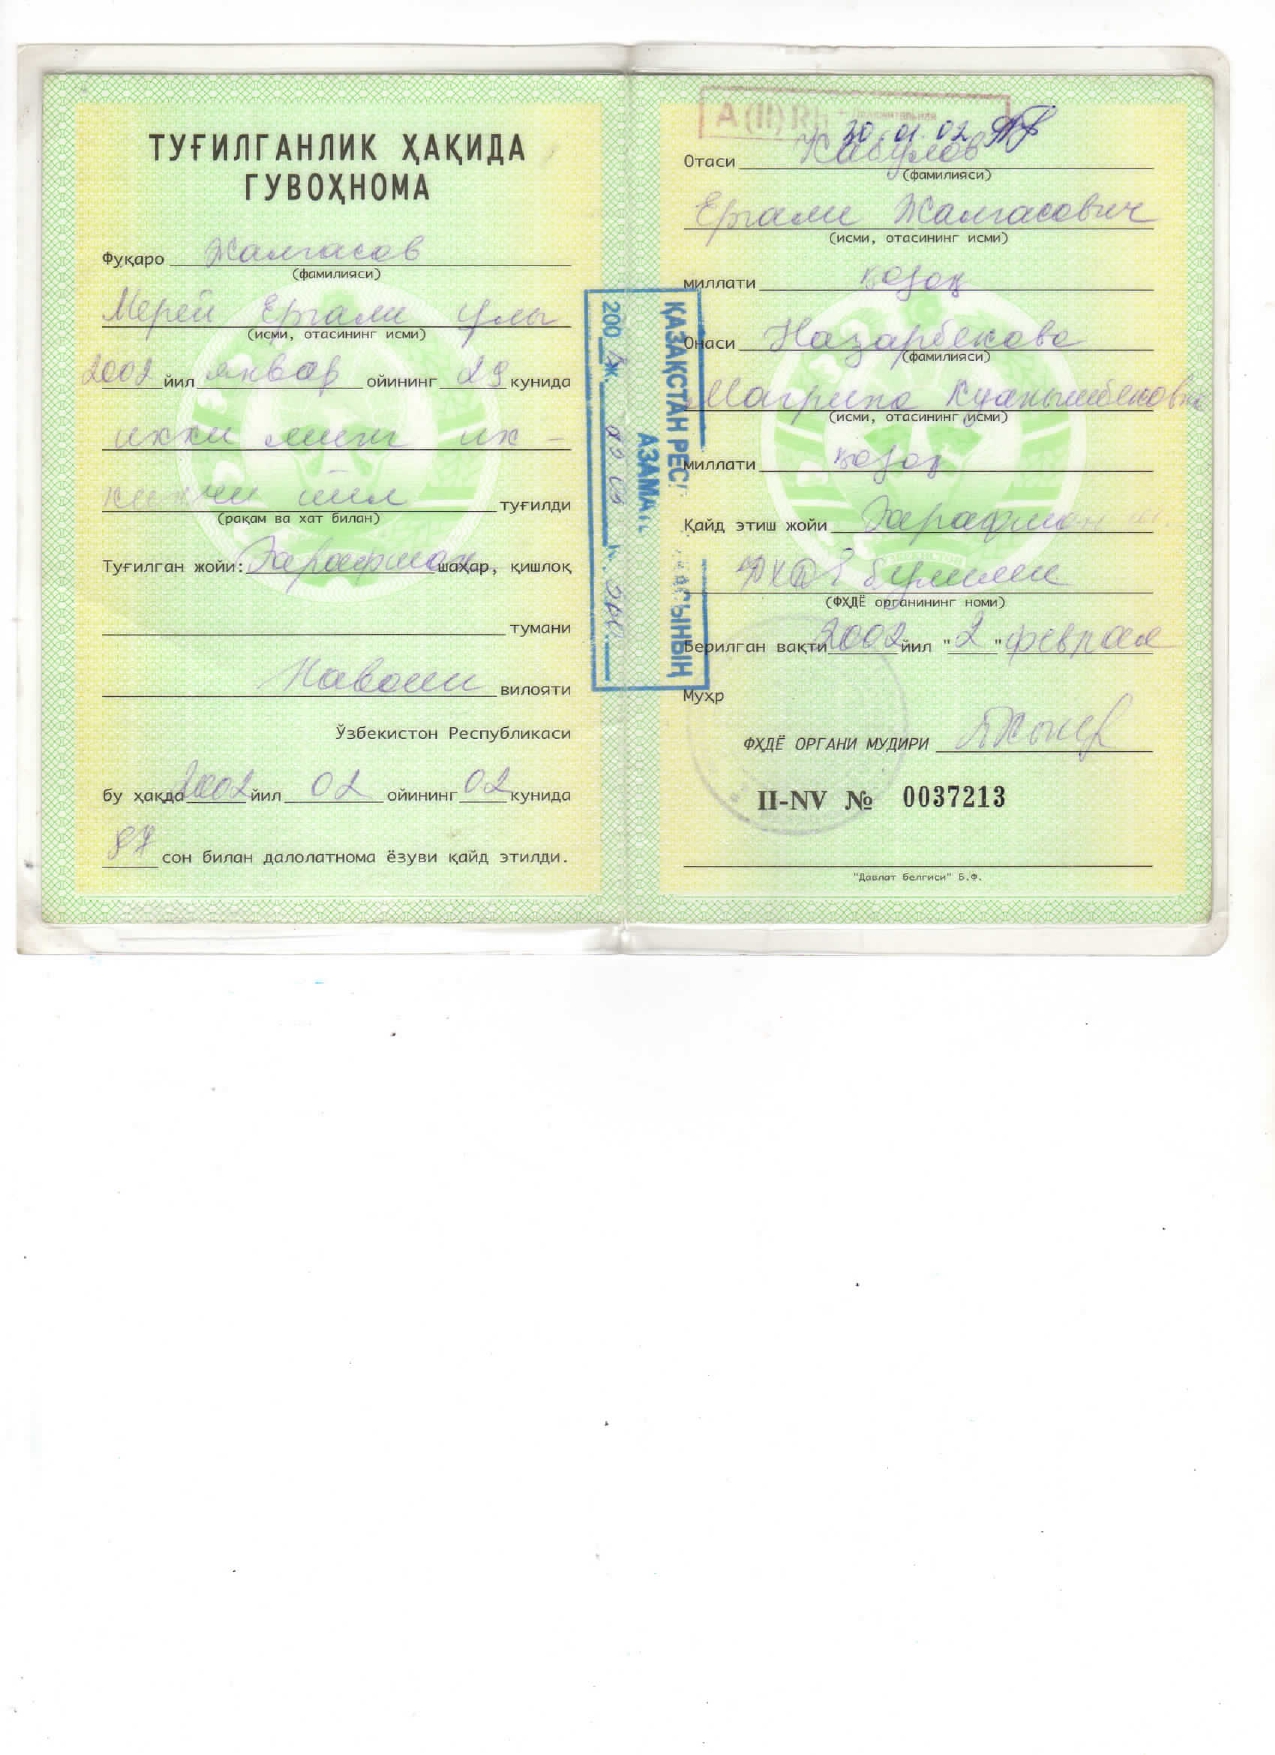 ТУҒИЛГАНЛИК ҲАҚИДА
ГУВОҲНОМА
Фуқаро Жалгасов
(фамилияси)
Мерей Ергали улы
(исми, отасининг исми)
2002 йил январ ойининг 29 кунида
икки минг ик-
кинчи йил туғилди
(рақам ва хат билан)
Туғилган жойи: Зарафшан шаҳар, қишлоқ
тумани
Навоий вилояти
Ўзбекистон Республикаси
бу ҳақда 2002 йил 02 ойининг 02 кунида
87 сон билан далолатнома ёзуви қайд этилди.
ҚАЗАҚСТАН РЕС
АЗАМАТ
200 ж.
A (II) Rh
30.01.02
Отаси Кабулов
(фамилияси)
Ергали Жалгасович
(исми, отасининг исми)
миллати қозоқ
Онаси Назарбекова
(фамилияси)
Магрипа Куанышбековна
(исми, отасининг исми)
миллати қозоқ
Қайд этиш жойи Зарафшон
ФХДЁ булими
(ФҲДЁ органининг номи)
Берилган вақти 2002 йил "2" феврал
Муҳр
ФҲДЁ ОРГАНИ МУДИРИ
II-NV № 0037213
"Давлат белгиси" Б.Ф.